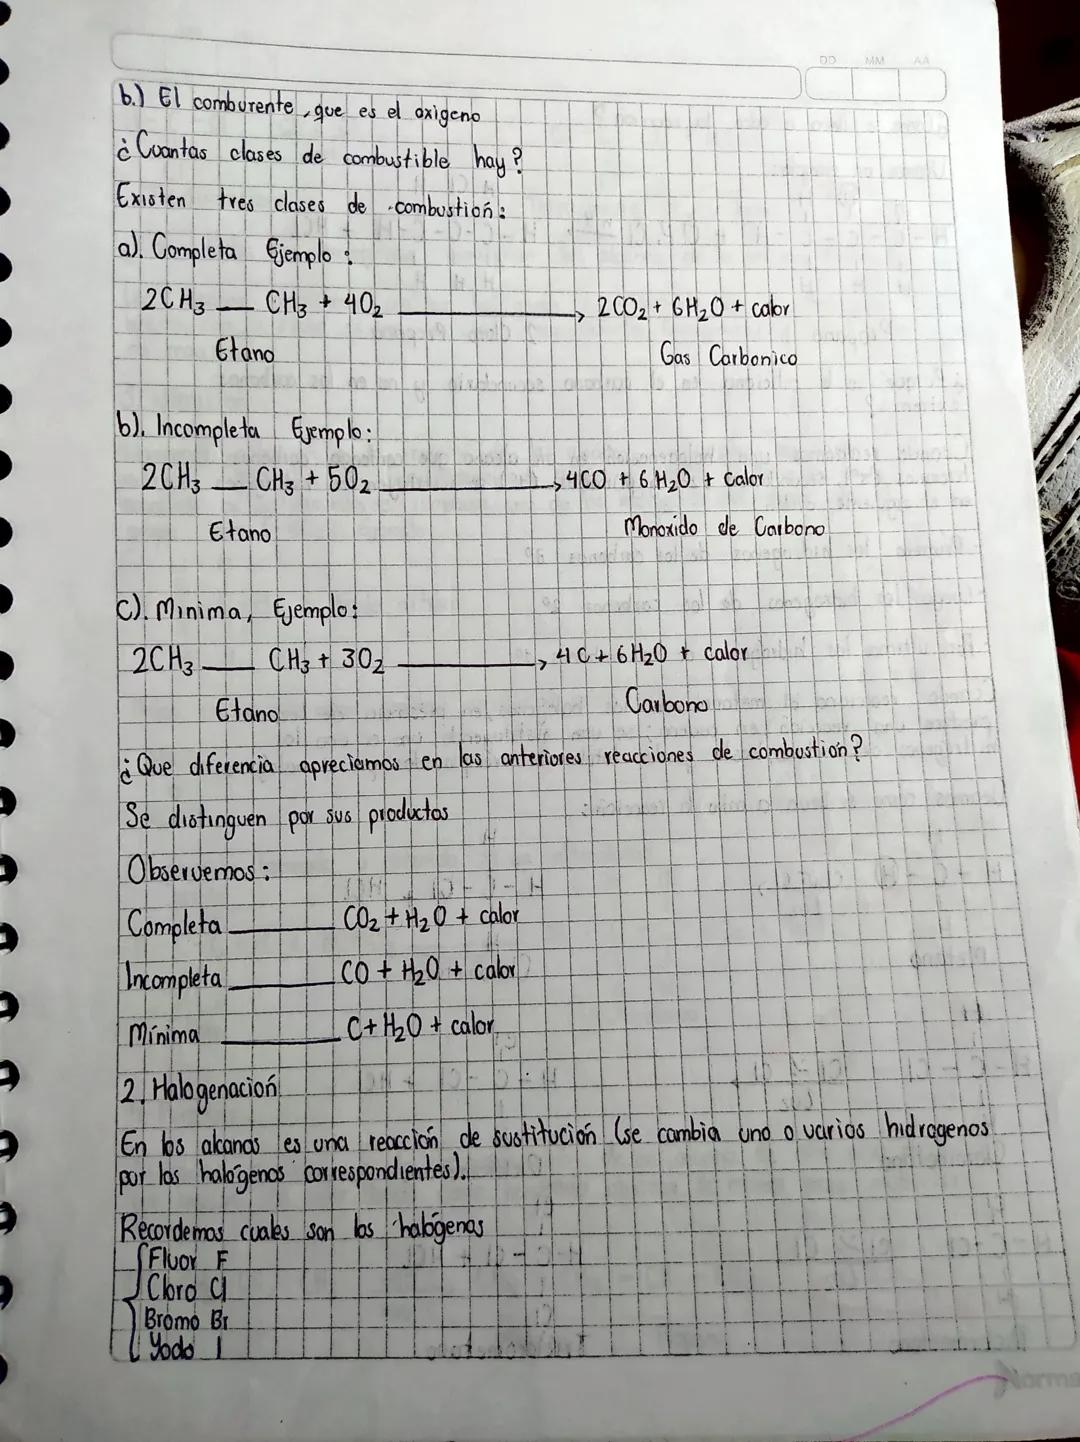 DD MM AA
b.) El comburente, que es el oxigeno
¿Cuantas clases de combustible hay?
Existen tres clases de combustión:
a). Completa Ejemplo:
2CH3 — CH3 + 4O2 → 2CO2 + 6H2O + calor
Etano Gas Carbonico
b). Incompleta Ejemplo:
2CH3 — CH3 + 5O2 → 4CO + 6H2O + Calor
Etano Monoxido de Carbono
C). Minima, Ejemplo:
2CH3 — CH3 + 3O2 → 4C + 6H2O + calor
Etano Carbono
¿Que diferencia apreciamos en las anteriores reacciones de combustión?
Se distinguen por sus productos
Observemos:
Completa ____ CO2 + H2O + calor
Incompleta ____ CO + H2O + calor
Mínima ____ C + H2O + calor
2. Halogenación
En los alcanos es una reacción de sustitución (se cambia uno o varios hidrogenos
por los halógenos correspondientes).
Recordemos cuales son los halógenos
Fluor F
Cloro Cl
Bromo Br
Yodo I
Norma